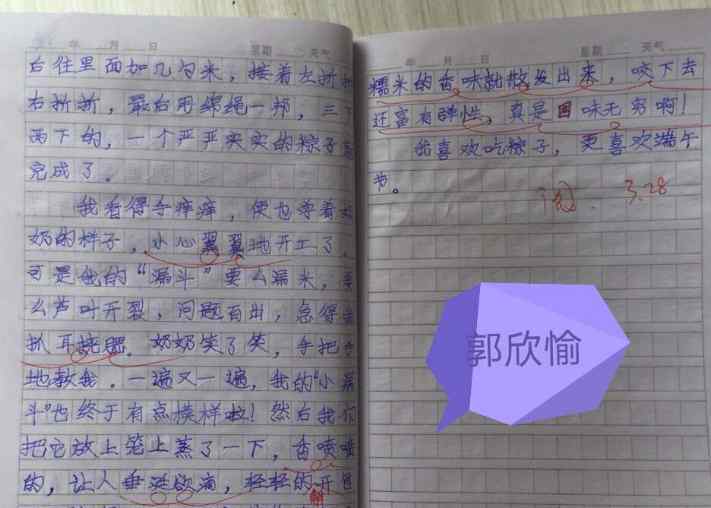 年 月 日 星期 天气
台往里面加几勺米，接着左折折
右折折，最后用绵绳一邦，三下
两下的，一个严严实实的粽子
完成了。
我看得手痒痒，便也学着奶
奶的样子，小心翼翼地开工了。
可是我的“漏斗”要么漏米，要
么芦叶开裂，问题百出，急得
抓耳挠腮。奶奶笑了笑，手把手
地教我。一遍又一遍，我的“小漏
斗”也终于有点模样啦！然后我们
把它放上笼上蒸了一下，香喷喷
的，让人垂涎欲滴，轻轻的开
解
年 月 日 星期 天气
糯米的香味就散发出来，咬下去
还富有弹性，真是回味无穷啊！
我喜欢吃粽子，更喜欢端午
节。
阅 3.28
郭欣愉